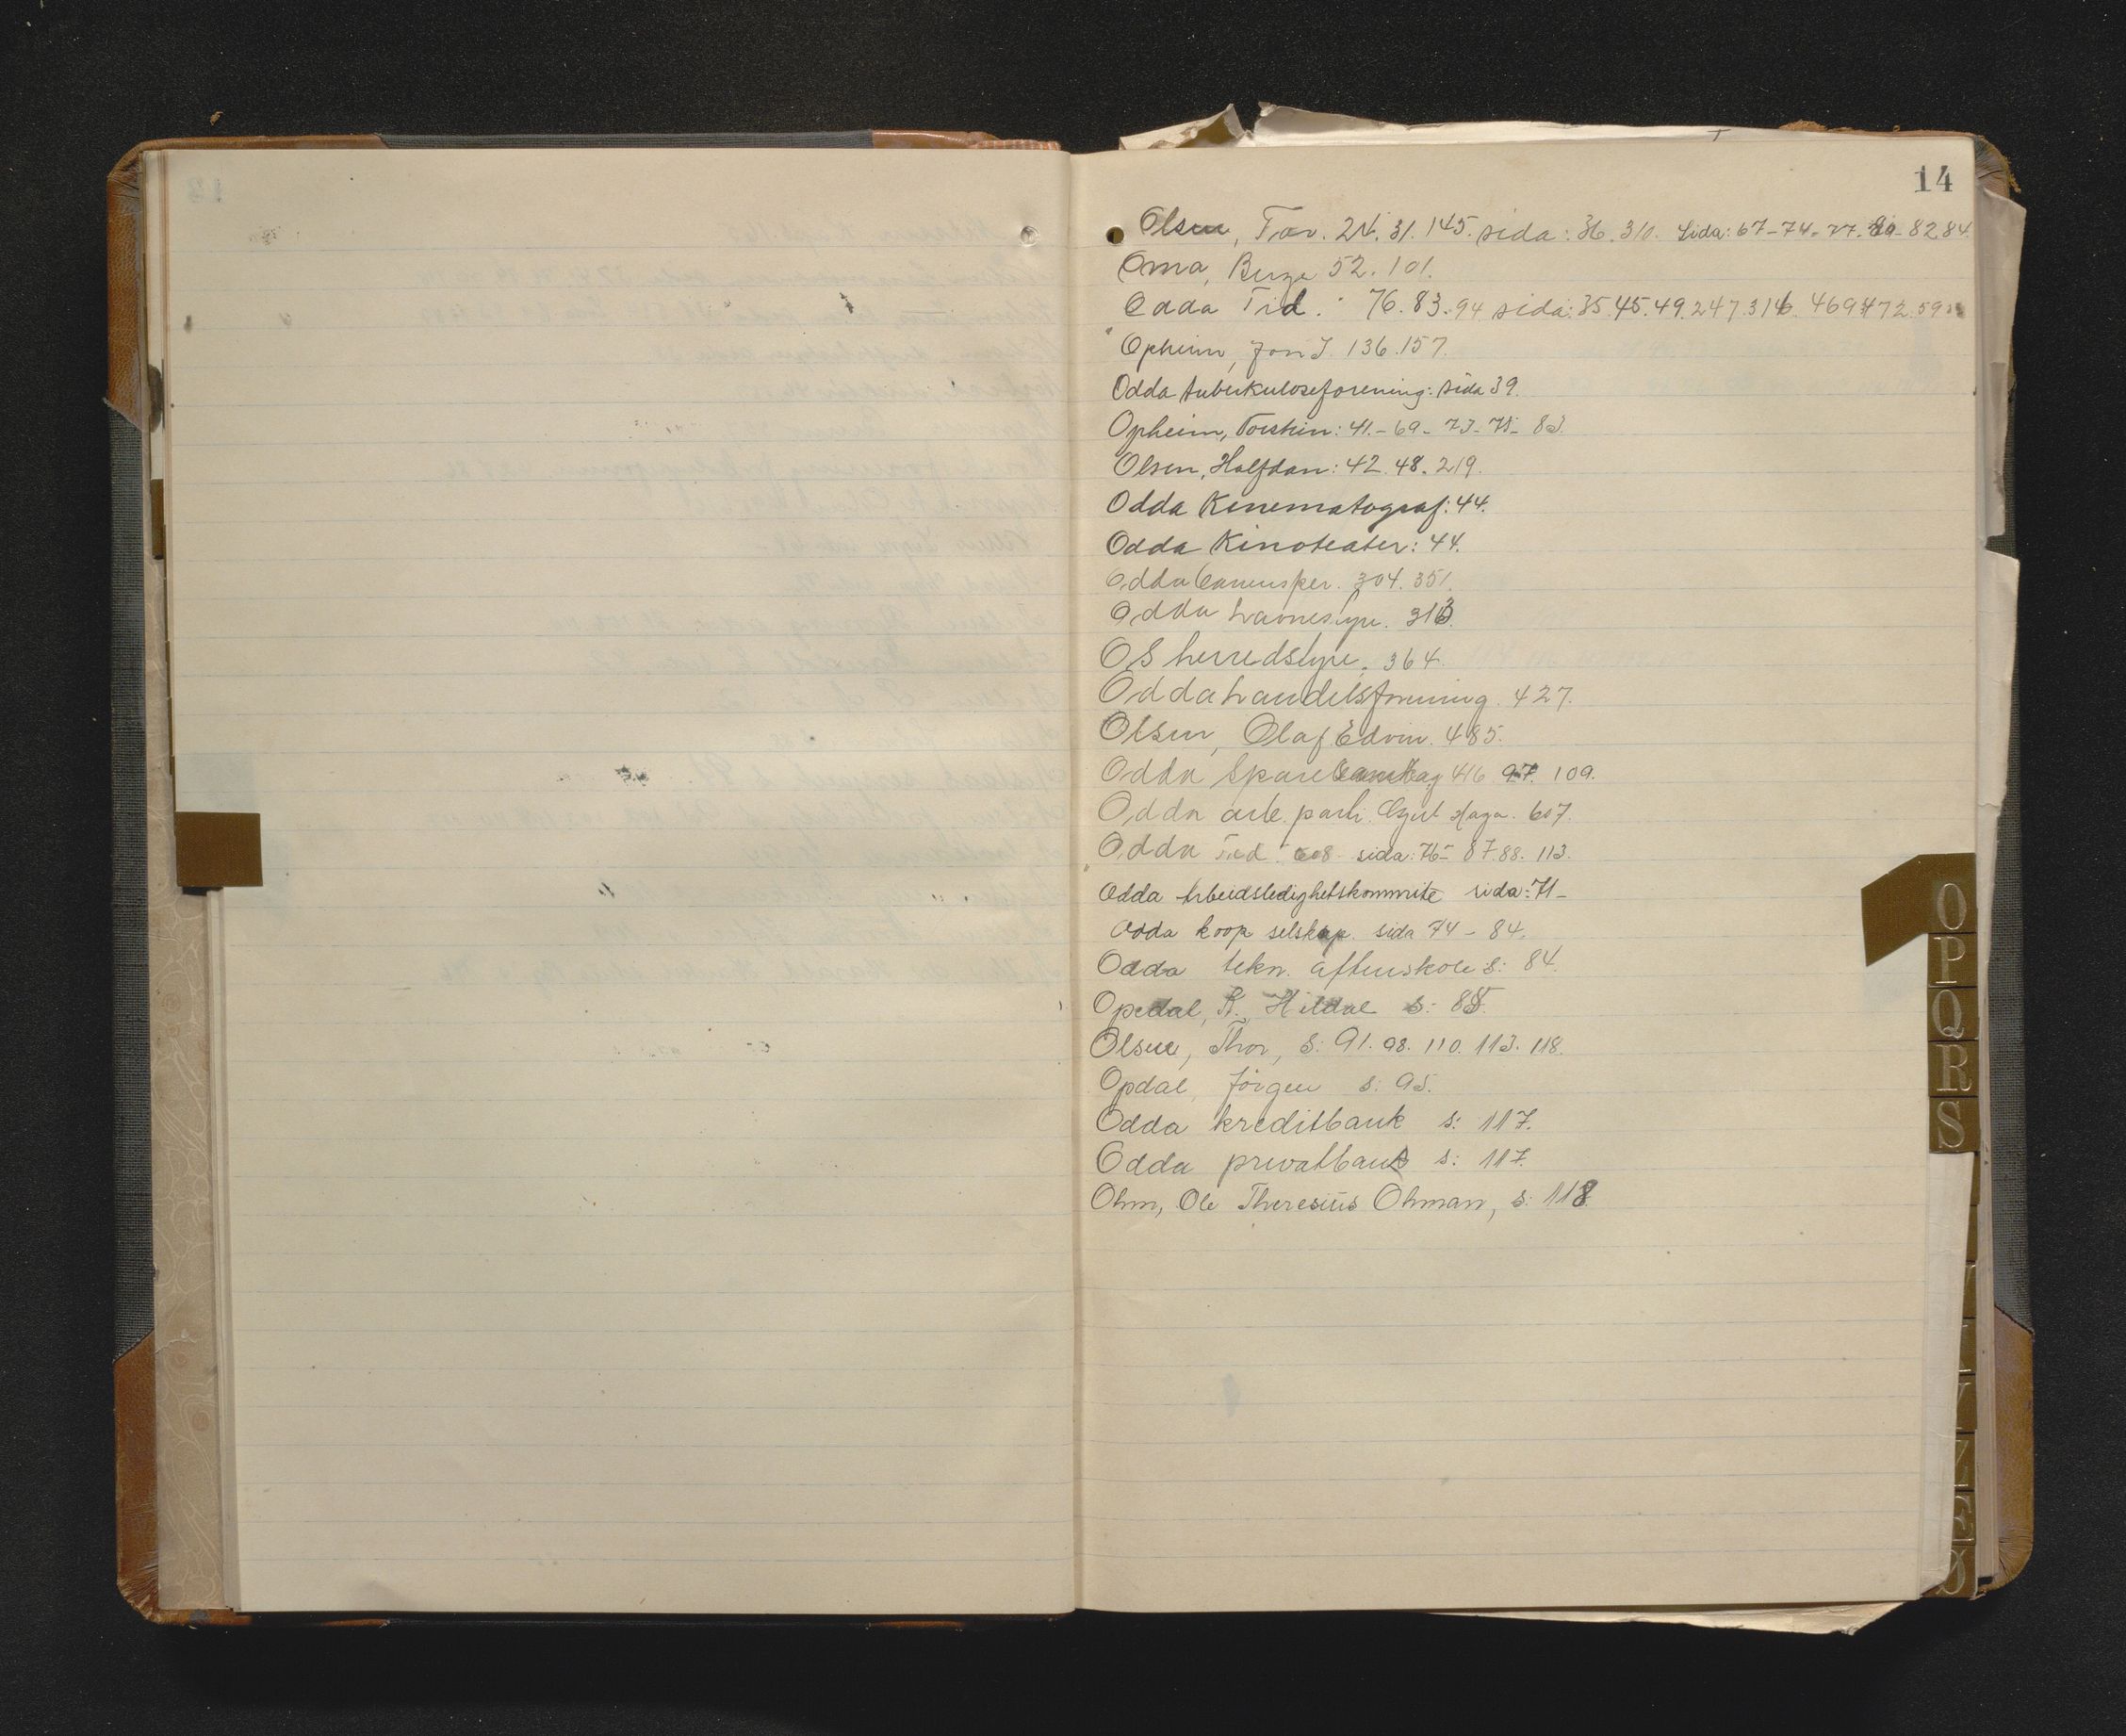 14
Olsen, Tor. 24. 31. 145. sida: 36. 310. Sida: 67-74-77-80-82 84.
Oma, Birge 52. 101.
Odda Tid. 76. 83. 94 sida: 35. 45. 49. 247. 316. 469. 472. 59
Opheim, Jon J. 136. 157.
Odda tuberkuloseforening: sida 39.
Opheim, Torstein: 41.-69-73-75-83.
Olsen, Halfdan: 42. 48. 219.
Odda Kinematograf: 44.
Odda Kinoteater: 44.
Odda 304. 351.
Odda havnestyre. 313.
OS herredstyre. 364.
Odda handelsforening. 427.
Olsen, Olaf Edvin. 485.
Odda Sparebank 416 97. 109.
Odda arb. parti. Haga. 607.
Odda Tid. 608 sida: 76- 87. 88. 113.
Odda Arbeidsledighetskommite sida: 71-
Odda koop selskap. sida 74 - 84.
Odda tekn. aftenskole s: 84.
Opedal, K. Hildal s: 85.
Olsen, Thor, s: 91. 98. 110. 113. 118.
Opdal, Jörgen s: 95.
Odda kreditbank s: 117.
Odda privatbank s: 117.
Ohm, Ole Theresius Ohman, s: 118.
O
P
Q
R
S